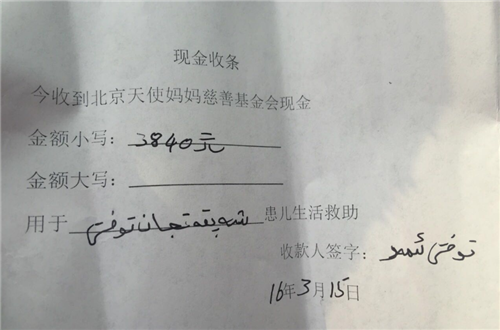 现金收条
今收到北京天使妈妈慈善基金会现金
金额小写：3840元
金额大写：
用于 توفتى 患儿生活救助
收款人签字：توختى ئىمەر
16年3月15日